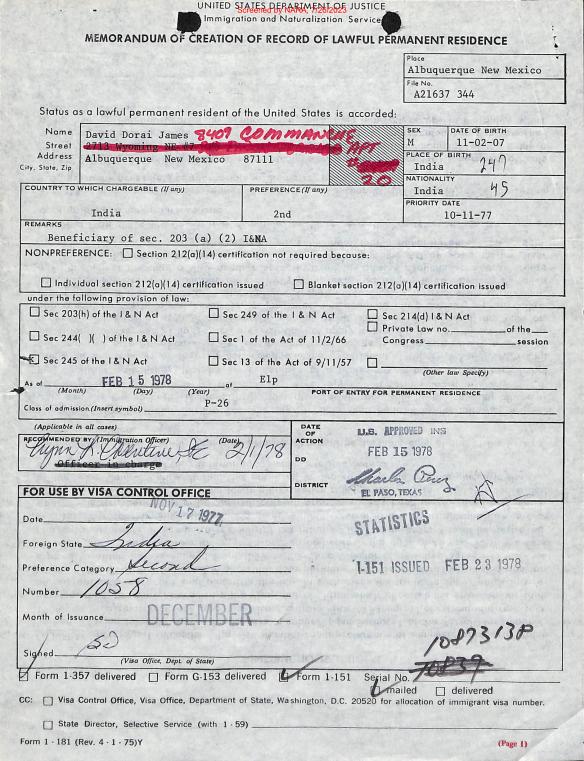 UNITED STATES DEPARTMENT OF JUSTICE
Screened by NARA, 7/26/2023
Immigration and Naturalization Service
MEMORANDUM OF CREATION OF RECORD OF LAWFUL PERMANENT RESIDENCE
Place
Albuquerque New Mexico
File No.
A21637 344
Status as a lawful permanent resident of the United States is accorded:
Name David Dorai James 8409 COMMANCHE
Street 2713 Wyoming NE #7 APT
Address Albuquerque New Mexico 87111 # 20
City, State, Zip
SEX M
DATE OF BIRTH 11-02-07
PLACE OF BIRTH
India 247
NATIONALITY
India 45
COUNTRY TO WHICH CHARGEABLE (If any)
India
PREFERENCE (If any)
2nd
PRIORITY DATE
10-11-77
REMARKS
Beneficiary of sec. 203 (a) (2) I&NA
NONPREFERENCE: Section 212(a)(14) certification not required because:
Individual section 212(a)(14) certification issued Blanket section 212(a)(14) certification issued
under the following provision of law:
Sec 203(h) of the I & N Act Sec 249 of the I & N Act Sec 214(d) I & N Act
Private Law no. of the
Sec 244( )( ) of the I & N Act Sec 1 of the Act of 11/2/66 Congress session
Sec 245 of the I & N Act Sec 13 of the Act of 9/11/57
(Other law Specify)
As of FEB 15 1978 at Elp
(Month) (Day) (Year) PORT OF ENTRY FOR PERMANENT RESIDENCE
Class of admission (Insert symbol) P-26
(Applicable in all cases)
RECOMMENDED BY: (Immigration Officer) (Date)
2/1/78
Officer in charge
DATE OF ACTION
DD
DISTRICT
U.S. APPROVED INS
FEB 15 1978
Charles Perez
EL PASO, TEXAS
FOR USE BY VISA CONTROL OFFICE
Date NOV 17 1977
Foreign State India
Preference Category Second
Number 1058
Month of Issuance DECEMBER
Signed
(Visa Office, Dept. of State)
STATISTICS
I-151 ISSUED FEB 23 1978
10873138
10839
Form I-357 delivered Form G-153 delivered Form I-151 Serial No.
mailed delivered
CC: Visa Control Office, Visa Office, Department of State, Washington, D.C. 20520 for allocation of immigrant visa number.
State Director, Selective Service (with 1-59)
Form I-181 (Rev. 4-1-75)Y
(Page 1)